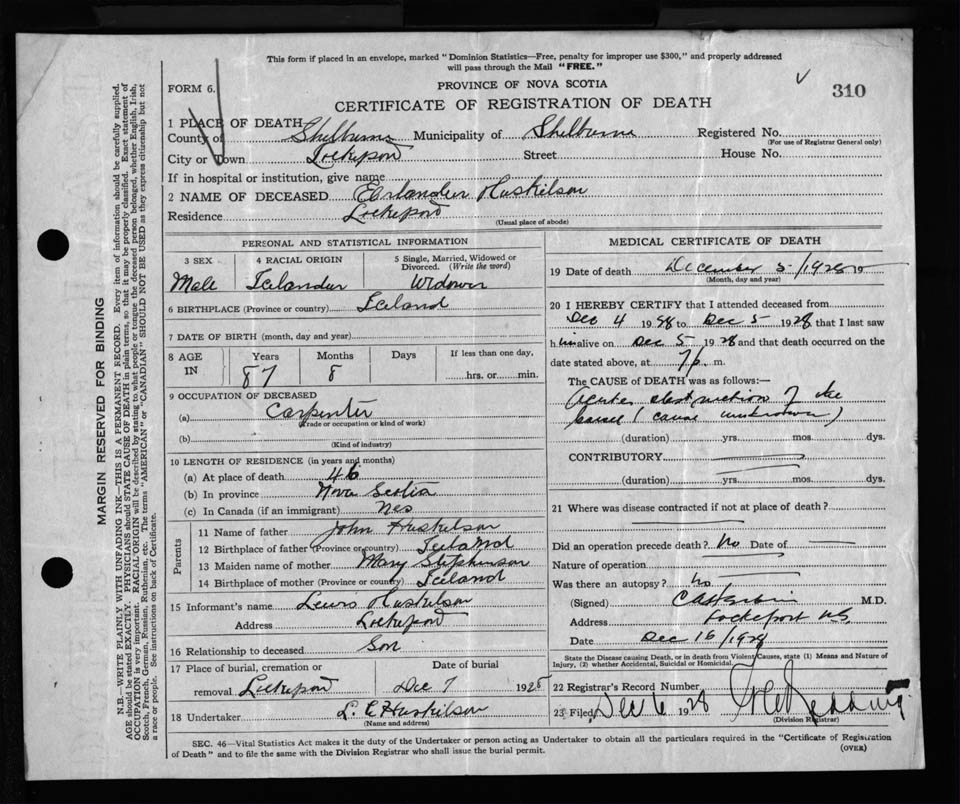 This form if placed in an envelope, marked "Dominion Statistics—Free, penalty for improper use $300," and properly addressed
will pass through the Mail "FREE."
FORM 6.
PROVINCE OF NOVA SCOTIA
310
CERTIFICATE OF REGISTRATION OF DEATH
1 PLACE OF DEATH
County of Shelburne Municipality of Shelburne Registered No.
(For use of Registrar General only)
City or Town Lockeport Street House No.
If in hospital or institution, give name
2 NAME OF DECEASED Erlander Huskilson
Residence Lockeport
(Usual place of abode)
PERSONAL AND STATISTICAL INFORMATION
3 SEX 4 RACIAL ORIGIN 5 Single, Married, Widowed or
Divorced. (Write the word)
Male Icelander Widower
6 BIRTHPLACE (Province or country) Iceland
7 DATE OF BIRTH (month, day and year)
8 AGE Years Months Days If less than one day,
IN 87 8 hrs. or min.
9 OCCUPATION OF DECEASED
(a) Carpenter
(Trade or occupation or kind of work)
(b)
(Kind of industry)
10 LENGTH OF RESIDENCE (in years and months)
(a) At place of death 46
(b) In province Nova Scotia
(c) In Canada (if an immigrant) yes
Parents
11 Name of father John Huskilson
12 Birthplace of father (Province or country) Iceland
13 Maiden name of mother Mary Stephenson
14 Birthplace of mother (Province or country) Iceland
15 Informant's name Lewis Huskilson
Address Lockeport
16 Relationship to deceased Son
17 Place of burial, cremation or Date of burial
removal Lockeport Dec 7 1928
18 Undertaker L. E Huskilson
(Name and address)
MEDICAL CERTIFICATE OF DEATH
19 Date of death December 5/1928
(Month, day and year)
20 I HEREBY CERTIFY that I attended deceased from
Dec 4 1928 to Dec 5 1928 that I last saw
him alive on Dec 5 1928 and that death occurred on the
date stated above, at 7 p. m.
The CAUSE of DEATH was as follows:—
Acute obstruction of the
bowel (cause unknown)
(duration) yrs. mos. dys.
CONTRIBUTORY
(duration) yrs. mos. dys.
21 Where was disease contracted if not at place of death?
Did an operation precede death? No Date of
Nature of operation
Was there an autopsy? No
(Signed) M.D.
Address Lockeport NS
Date Dec 16/1928
State the Disease causing Death, or in death from Violent Causes, state (1) Means and Nature of
Injury, (2) whether Accidental, Suicidal or Homicidal.
22 Registrar's Record Number
23 Filed Dec 6 1928
(Division Registrar)
SEC. 46—Vital Statistics Act makes it the duty of the Undertaker or person acting as Undertaker to obtain all the particulars required in the "Certificate of Registration
of Death" and to file the same with the Division Registrar who shall issue the burial permit.
(OVER)
MARGIN RESERVED FOR BINDING
N.B.—WRITE PLAINLY WITH UNFADING INK—THIS IS A PERMANENT RECORD. Every item of information should be carefully supplied.
AGE should be stated EXACTLY. PHYSICIANS should STATE CAUSE OF DEATH in plain terms, so that it may be properly classified. Exact statement of
OCCUPATION is very important. RACIAL ORIGIN will be described by stating to what people or tongue the deceased person belonged, whether English, Irish,
Scotch, French, German, Russian, Ruthenian, etc. The terms "AMERICAN" or "CANADIAN" SHOULD NOT BE USED as they express citizenship but not
a race or people. See instructions on back of Certificate.